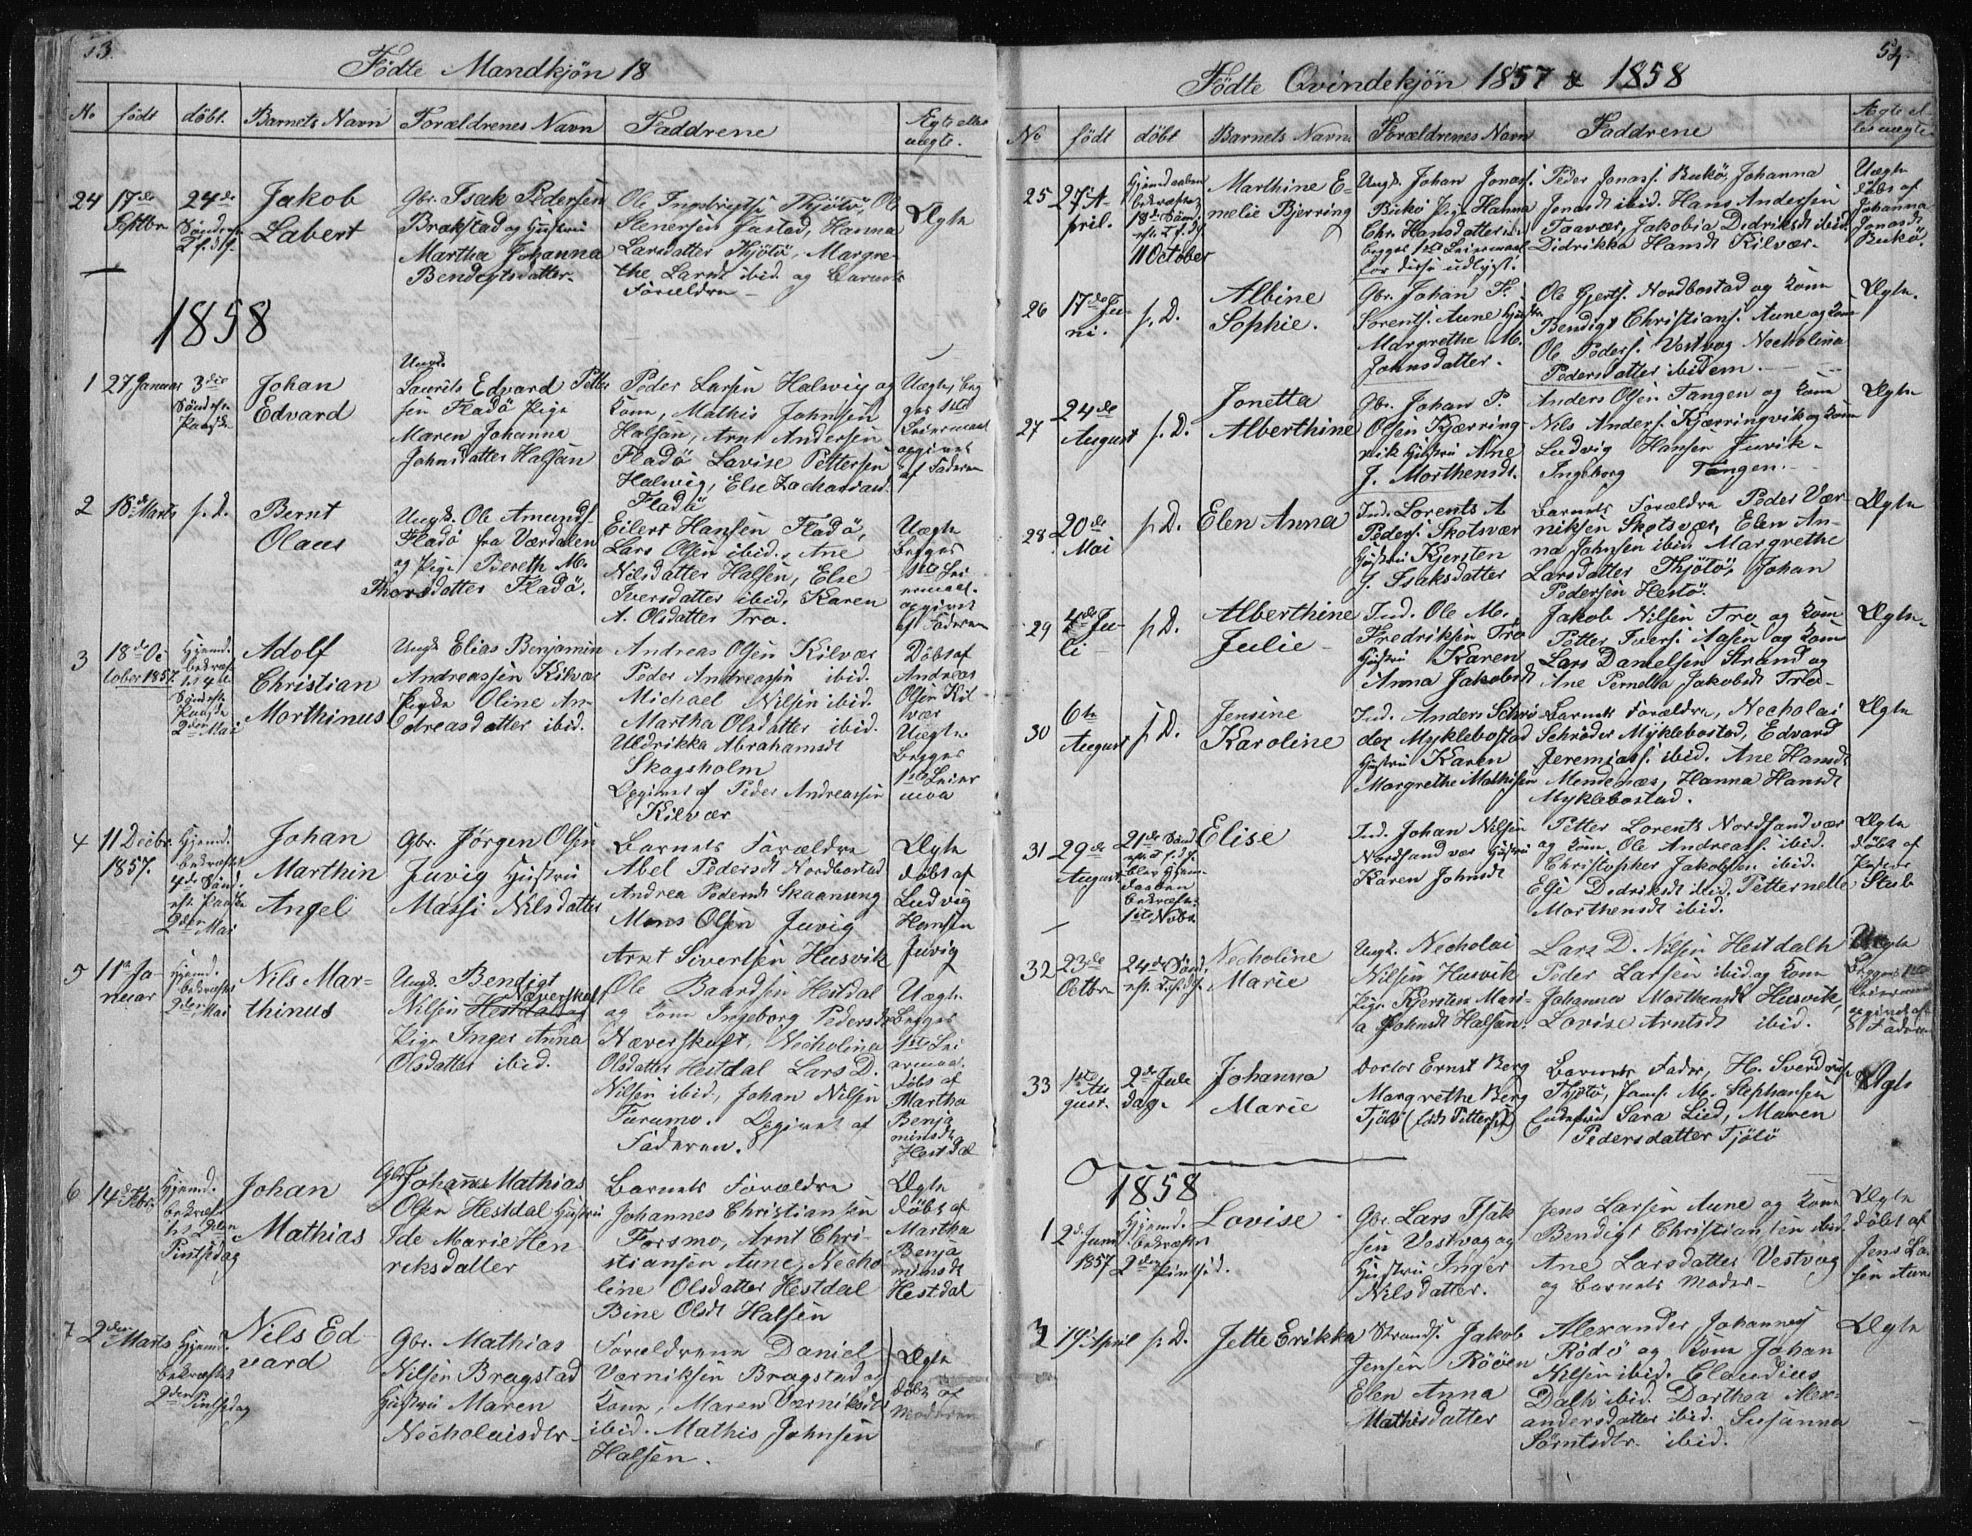 53.
Födte Mandkjön 18
No födt döbt. Barnets Navn Forældrenes Navn Faddrene Egte eller uægte.
24 17de Septbr 24de Söndag Jakob Labert
Gbr. Isak Pedersen
Brakstad og Hustru
Martha Johanna
Bendigtsdatter
Ole Ingebrigtsen Thjötö, Ole
Stenersen Jastad, Hanna
Larsdatter Thjötö, Margre-
the Larsdt ibid. og Barnets
Forældre
Ægte
1858
1 27 Januar 3die Söndag Johan Edvard
Ungk.
Laurits Edvard Petter
sen Fladö Pige
Maren Johanna
Johnsdatter Halsan
Peder Larsen Halwig og
Kone, Mathis Johnsen
Halsan, Arnt Andersen
Fladö Lovise Pettersen
Halwig, Else Zachariasd.
Fladö
Uægte, beg
ges 1ste
Leiermaal
opgivet
af Faderen
2 18de Marts p. D. Bernt Olaus
Ungk. Ole Amunds.
Fladö fra Værdalen
og Pige Bereth M.
Thorsdatter Fladö.
Eilert Hansen Fladö,
Lars Olsen ibid., Ane
Nilsdatter Halsen, Else
Iversdatter ibid, Karen
A. Olsdatter Tro.
Uægte
Begges
1ste Lei
ermaal.
opgivet
af Faderen
3 18de Oc
tober 1857.
Hjemd.
bekræft
Söndag
2den Mai
Adolf
Christian
Morthinus
Ungk Elias Benjamin
Andreassen Kilvær
Pigen Oline An-
dreasdatter ibid.
Andreas Olsen Kilvær
Peder Andreassen ibid.
Michael Nilsen ibid.
Martha Olsdatter ibid.
Uldrikka Abrahamsdt
Skogsholm
Opgivet af Peder Andreassen
Kilvær
Döbt af
Andreas
Olsen Kil
vær
Uægte.
Begges
1ste Leier
maa
4 11 Decbr.
1857.
Hjemd.
bekræftet
4de Sönd.
eft. Paaske
2den Mai
Johan
Marthin
Angel
Gbr. Jørgen Olsen
Juvig Hustru
Massi Nilsdatter
Barnets Forældre
Abel Pedersdt Nordbostad
Andrea Pedersdt Skaanseng
Mons Olsen Juvig
Arnt Sivertsen Husvik
Ægte
döbt af
Ludvig
Hansen
Juvig
5 11te Ja-
nuar
Hjemd.
bekræftet
2den Mai
Nils Mar-
thinus
Ungk. Bendigt
Nilsen Hestdal Næverskaft
Pige Inger Anna
Olsdatter ibid.
Ole Baardsen Hestdal
og Kone Ingeborg Pedersdt
Næverskaft, Necholina
Olsdatter Hestdal Lars D.
Nilsen ibid, Johan Nilsen
Forsmo. Opgivet af
Faderen.
Uægte
Begges
1ste Lei
ermaal.
Döbt af
Martha
Benja
minsdt
Hestdal
6 14de Febr.
Hjemd.
bekræft
2den
Pintsdag
Johan
Mathias
Gbr. Johannes Mathias
Olsen Hestdal Hustru
Ide Marie Hen
riksdatter
Barnets Forældre
Johannes Christiansen
Forsmo, Arnt Chri-
stiansen Aune, Necho
line Olsdatter Hestdal
Bine Olsdt Halsen
Ægte
döbt af
Martha
Benja
minsdt
Hestdal
7 2den Marts
Hjemd.
bekræftet
2den Pintsdag
Nils Ed-
vard
Gbr. Mathias
Nilsen Bragstad
Hustru Maren
Necholaisdtr
Forældrene Daniel
Værniksen Bragstad og
Kone, Maren Værniksdt
ibid. Mathis Johnsen
Halsen.
Ægte
döbt af
Moderen
54.
Födte Qvindekjön 1857 & 1858
No födt döbt Barnets Navn. Forældrenes Navn Faddrene Ægte el-
ler uægte.
25 27 A-
pril.
Hjemdaaben
bekræftet
18de Sönd.
11 October
Marthine E-
melie Bjerring
Ungk. Johan Jonass.
Bukö Pige Hanna
Chr. Hansdatter
begges 1ste Leiermaal
for disse udlyst.
Peder Jonass. Bukö, Johanna
Jonasdt ibid. Hans Andersen
Paavær, Jakobia Didriksdt ibid.
Didrikka Hansdt Kilvær.
Uægte
döbt af
Johanna
Jonasdt
Bukö
26 17de Ju-
ni.
p. D.
Albine
Sophie.
Gbr. Johan F.
Lorents. Aune Hustru
Margrethe M.
Johnsdatter.
Ole Gjerts. Nordbostad og Kone
Bendigt Christians. Aune og Kone
Ole Peders. Vestvog Necholina
Pedersdatter ibidem.
Ægte.
27 24de
August
p. D.
Jonetta
Alberthine
Gbr. Johan P.
Olsen Kjærring-
vik Hustru Ane
J. Morthensdt.
Anders Olsen Tangen og Kone
Nils Anders. Kjærringvik og Kone
Ludvig Hansen Juvik
Ingeborg Tangen.
Ægte
28 20de
Mai
p. D. Elen Anna
Ind. Lorents A
Peders. Skotsvær
Hustru Kjersten
J. Isaksdatter
Barnets Forældre Peder Vær-
niksen Skotsvær, Elen An-
na Johnsen ibid. Margrethe
Larsdatter Thjötö, Johan
Pedersen Hestö.
Ægte
29 4de Ju-
li
p. D.
Alberthine
Julie
Ind. Ole M.
Fredriksen Tro
Hustru Karen
Anna Jakobsdt
Jakob Nilsen Tro og Kone
Petter Ivers. Aasen og Kone
Lars Danielsen Strand og
Ane Pernella Jakobsdt Tro
Ægte.
30 6te
August
p. D.
Jensine
Karoline
Ind. Anders Schrö-
der Myklebostad
Hustru Karen
Margrethe Mathisen
Barnets Forældre, Necholai
Schröder Myklebostad, Edvard
Jeremiass. ibid. Ane Hansdt
Mendenæs, Hanna Hansdt
Myklebostad.
Ægte
31 29de
August
21de Sönd
eft. T.f.d.f.
blev Hjem-
daaben
bekræftet
1ste Novbr.
Elise
Ind. Johan Nilsen
Nordsandvær Hustru
Karen Johnsdt
Petter Lorents Nordsandvær
og Kone, Ole Andreass. ibid.
Christopher Jakobsen ibid.
Elsi Didriksdt ibid, Petternelle
Morthensdt ibid.
Ægte
döbt af
Peder
Stub
32 23de
Octbr
24de Sönd.
Necholine
Marie
Ungk. Necholai
Nilsen Husvik
Pige Kjersten Mari-
a Johnsdt Halsan.
Lars D. Nilsen Hestdalh
Peder Larsen ibid og Kone
Johanna Morthensdt Husvik,
Lovise Arntsdt ibid.
Uægte
Begges 1ste
Leiermaal
opgivet af
Faderen
33 1ste Au
gust.
2de Jule
dag.
Johanna
Marie
Doctor Ernst Berg
Margrethe Berg
Tjötö (födt Pettersen)
Barnets Fader, H. Sverdrup
Tjötö, Jomf. M. Stephansen
Sara Lied, Maren
Pedersdatter Tjötö
Ægte
1858
1 2de Juni
1857
Hjemd.
bekræftet
2den Pintsd.
Lovise
Gbr. Lars Isak
sen Vestvog og
Hustru Inger
Nilsdatter.
Jens Larsen Aune og Kone
Bendigt Christiansen ibid.
Ane Larsdatter Vestvog
og Barnets Moder
Ægte
döbt af
Jens La-
sen Aune
2 19de April p. D. Jette Erikka
Strands. Jakob
Jensen Rööen
Elen Anna
Mathisdatter
Alexander Johannes
Rödö og Kone Johan
Nilsen ibid. Claudius
Dalh ibid. Dorthea Alex-
andersdatter ibid. Susanna
Sörntsdtr. ibid.
Ægte